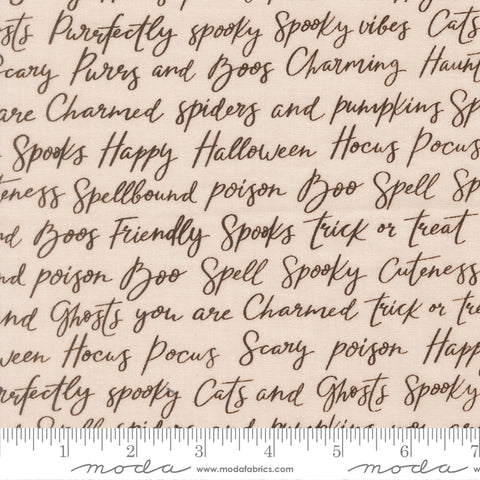 osts Purrfectly spooky Spooky vibes Cats
Scary Purrs and Boos Charming Haunt
are Charmed spiders and pumpkins Sp
Spooks Happy Halloween Hocus Pocus
teness Spellbound poison Boo Spell Sp
nd Boos Friendly Spooks trick or treat
nd poison Boo Spell Spooky Cuteness
and Ghosts you are Charmed trick or tre
ween Hocus Pocus Scary poison Happ
rrfectly spooky Cats and Ghosts Spooky
Spell spiders and pumpkins you are
1 2 3 4 5 6 7
moda www.modafabrics.com moda www.modafabrics.com moda